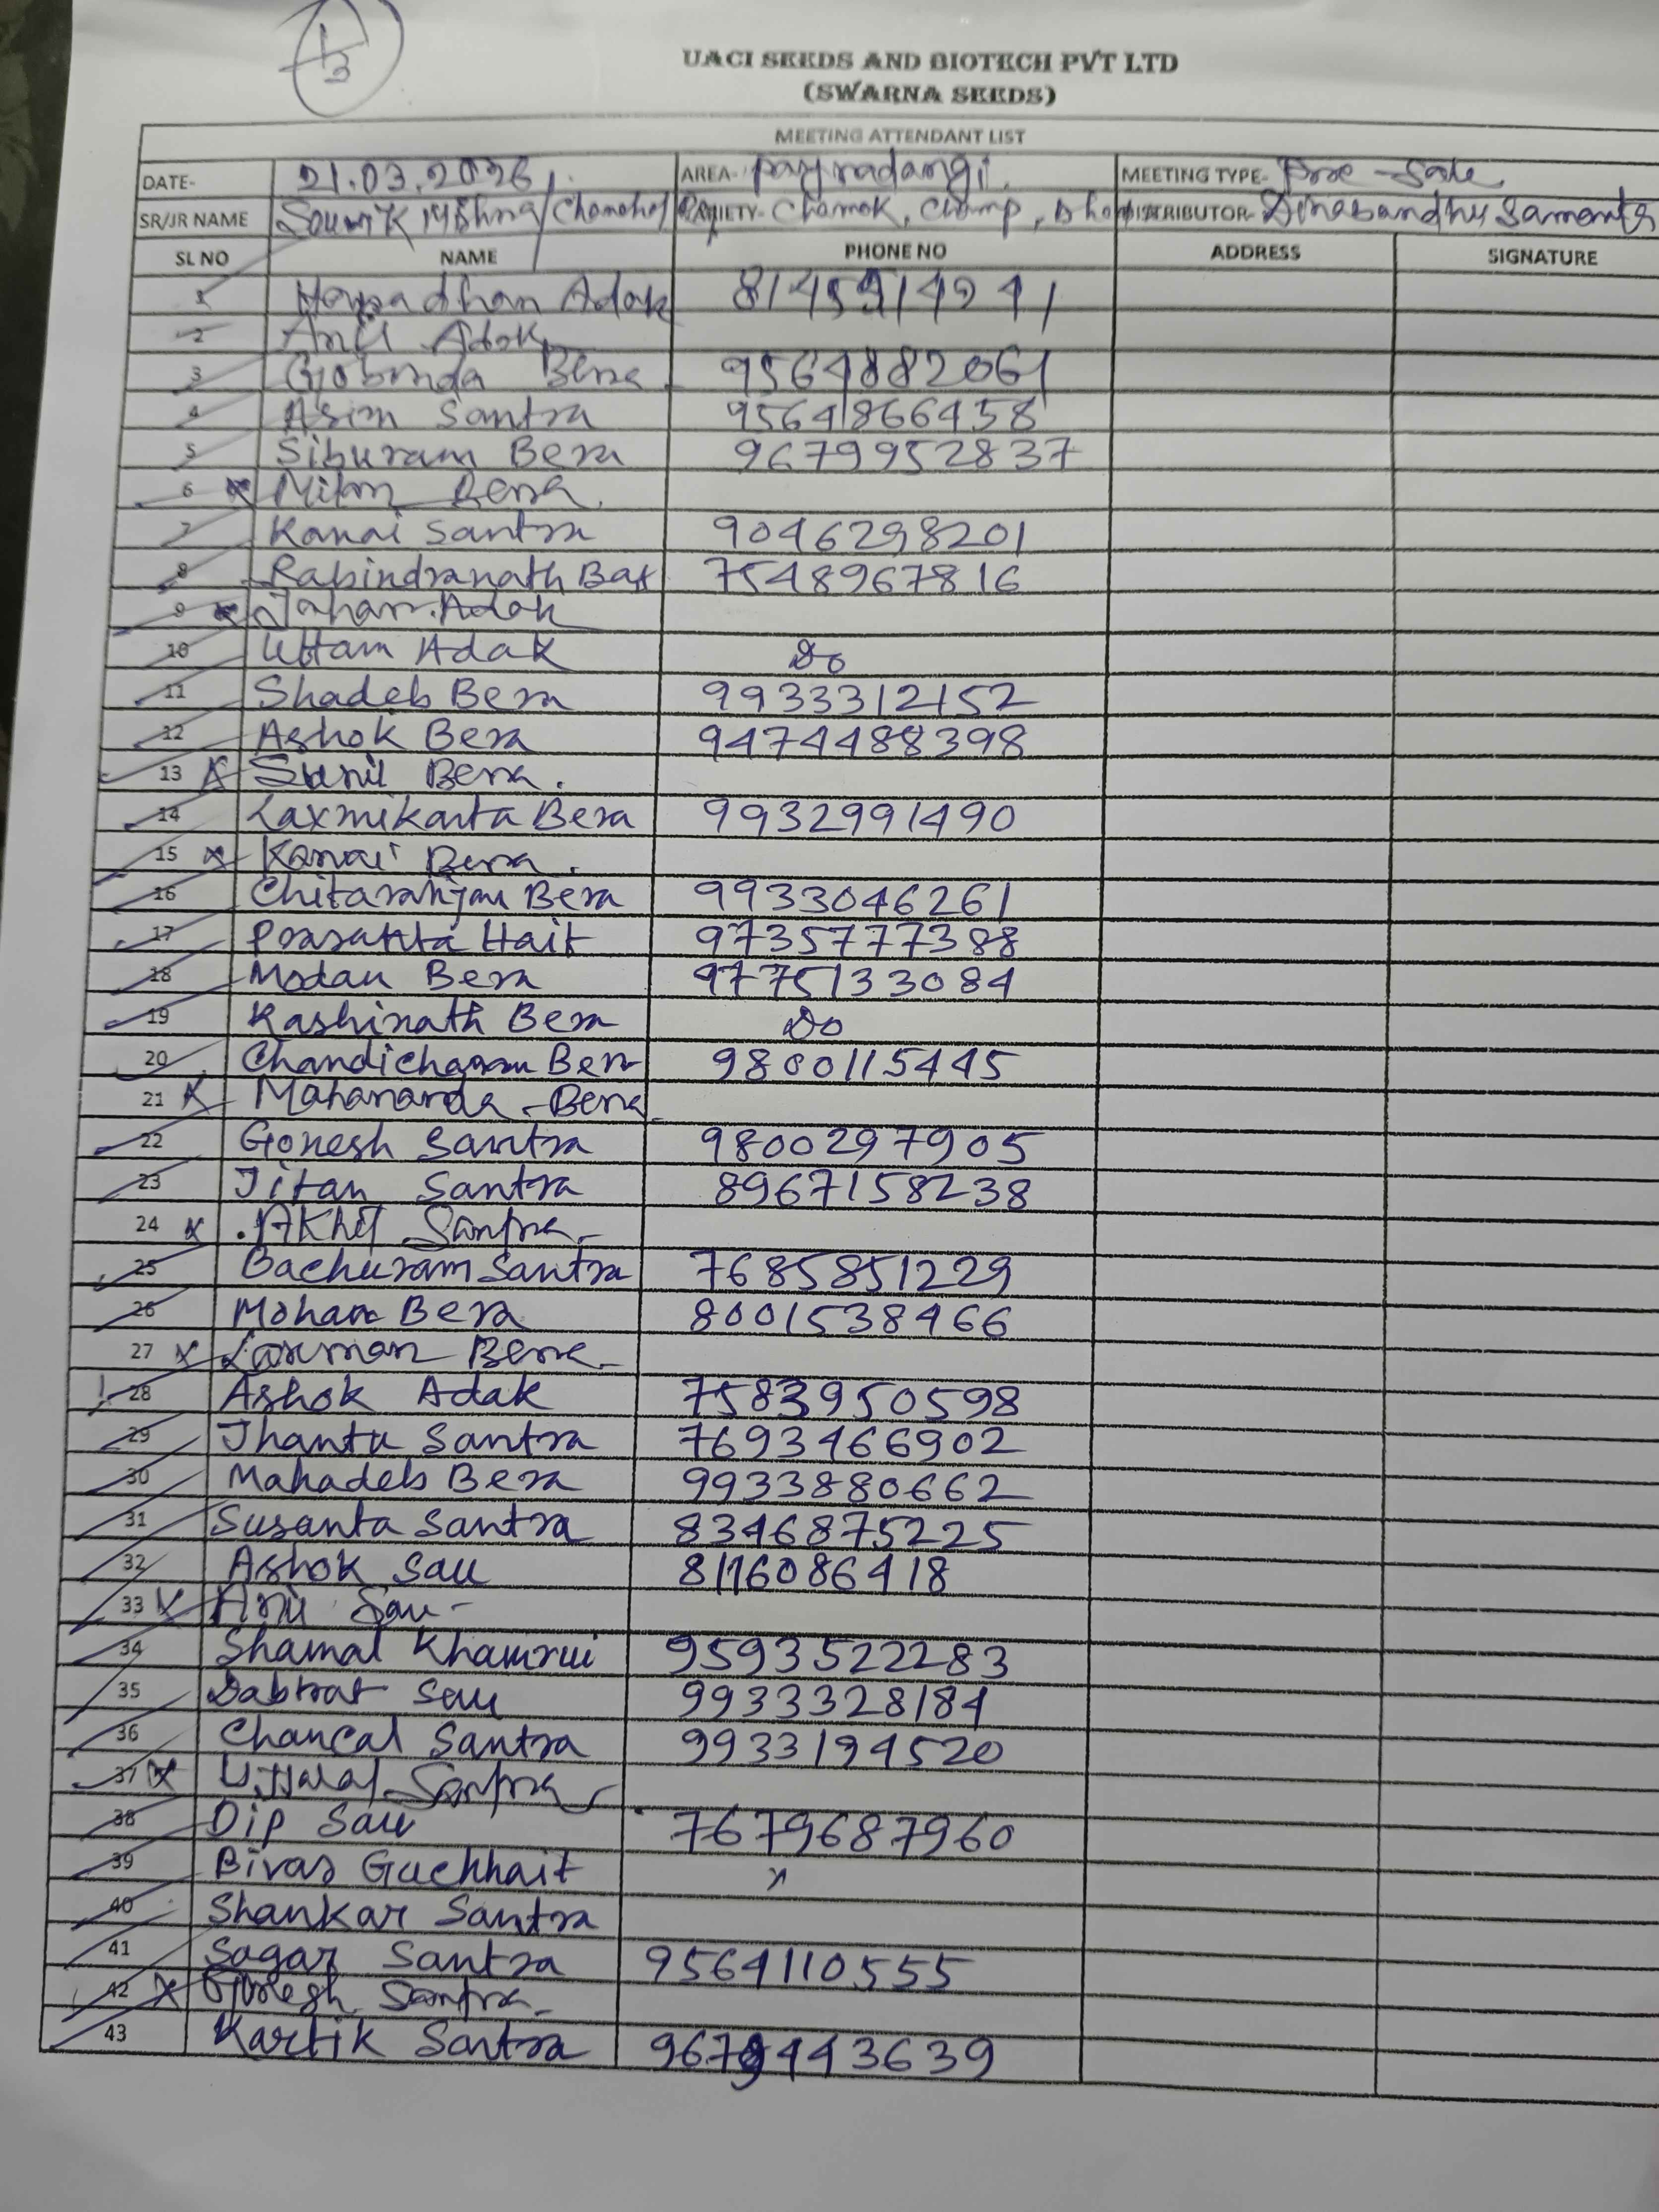 1/3
UACI SEEDS AND BIOTECH PVT LTD
(SWARNA SEEDS)
MEETING ATTENDANT LIST
DATE- 21.03.2026 AREA- Payradangi. MEETING TYPE- Pre-Sale
SR/JR NAME Soumik Mishra/ VARIETY- Chamok, Champ, DISTRIBUTOR- Dinabandhu Samanta
SL NO NAME PHONE NO ADDRESS SIGNATURE
1 Haradhan Adak
2 Anil Adak
3 Gobinda Bera 9564882061
4 Asim Santra 9564866458
5 Siburam Bera 9679952837
6 x Milan Bera.
7 Kanai Santra 9046298201
8 Rabindranath Bar 7548967816
9 x Adak
10 Uttam Adak Do
11 Shadeb Bera 9933312152
12 Ashok Bera 9474488398
13 x Sunil Bera.
14 Laxmikanta Bera 9932991490
15 x Kanai Bera.
16 Chitaranjan Bera 9933046261
17 Prasanta Hait 9735777388
18 Modan Bera 9775133084
19 Kashinath Bera Do
20 Chandicharan Bera 9800115445
21 x Mahananda Bera
22 Gonesh Santra 9800297905
23 Jitan Santra 8967158238
24 x Akhil Santra
25 Bachuram Santra 7685851229
26 Mohan Bera 8001538466
27 x Laxman Bera
28 Ashok Adak 7583950598
29 Jhantu Santra 7693466902
30 Mahadeb Bera 9933880662
31 Susanta Santra 8346875225
32 Ashok Sau 8116086418
33 x Anil Sau
34 Shamal Khamrui 9593522283
35 Dabbrat Sau 9933328184
36 Chancal Santra 9933194520
37 x Ujjal Santra
38 Dip Sau 7679687960
39 Bivas Guchhait x
40 Shankar Santra
41 Sagar Santra 9564110555
42 x Gonesh Santra
43 Kartik Santra 9679443639